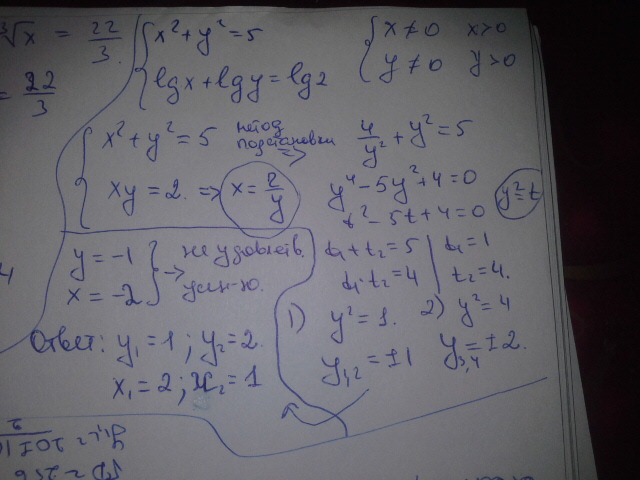 ∛x = 22/3
= 22/3
{ x² + y² = 5
{ lg x + lg y = lg 2
{ x ≠ 0 x > 0
{ y ≠ 0 y > 0
{ x² + y² = 5
{ xy = 2. => x = 2/y
метод
подстановки
=>
4/y² + y² = 5
y⁴ - 5y² + 4 = 0
y² = t
t² - 5t + 4 = 0
t₁ + t₂ = 5 | t₁ = 1
t₁ · t₂ = 4 | t₂ = 4.
1) y² = 1. 2) y² = 4
y₁,₂ = ±1 y₃,₄ = ±2.
y = -1 } → не удовлетв.
x = -2 } усл-ю.
Ответ: y₁ = 1 ; y₂ = 2.
x₁ = 2 ; x₂ = 1